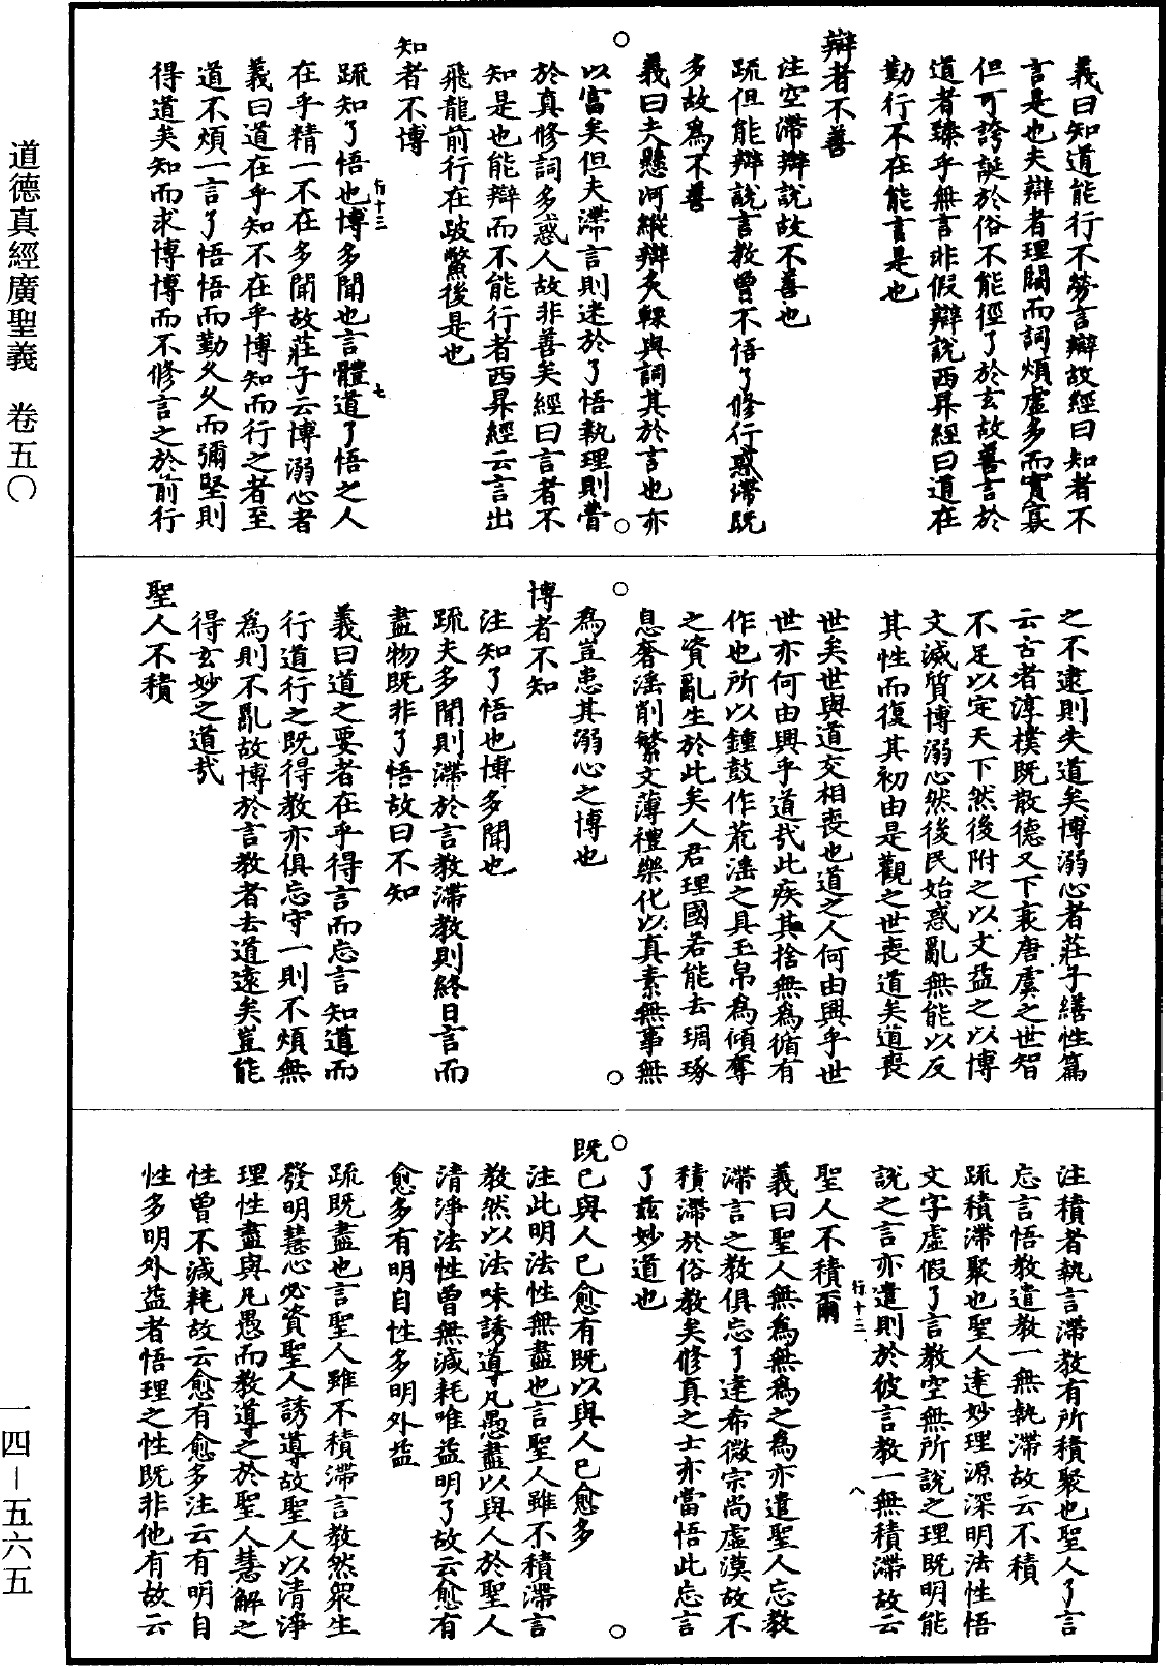 義曰知道能行不勞言辯故經曰知者不
言是也夫辯者理闊而詞煩虛多而實寡
但可誇誕於俗不能徑了於玄故善言於
道者臻乎無言非假辯說西昇經曰道在
勤行不在能言是也
辯者不善
注空滯辯說故不善也
疏但能辯說言教曾不悟了修行惑滯既
多故為不善
義曰夫懸河縱辯炙輠與詞其於言也亦
以富矣但夫滯言則迷於了悟執理則瞢
於真修詞多惑人故非善矣經曰言者不
知是也能辯而不能行者西昇經云言出
飛龍前行在跛鱉後是也
知者不博
疏知了悟也博多聞也言體道了悟之人
在乎精一不在多聞故莊子云博溺心者
義曰道在乎知不在乎博知而行之者至
道不煩一言了悟悟而勤久久而彌堅則
得道矣知而求博博而不修言之於前行
之不逮則失道矣博溺心者莊子繕性篇
云古者淳樸既散德又下衰唐虞之世智
不足以定天下然後附之以文益之以博
文滅質博溺心然後民始惑亂無能以反
其性而復其初由是觀之世喪道矣道喪
世矣世與道交相喪也道之人何由興乎世
世亦何由興乎道哉此疾其捨無為循有
作也所以鍾鼓作荒淫之具玉帛為傾奪
之資亂生於此矣人君理國若能去琱琢
息奢淫削繁文薄禮樂化以真素無事無
為豈患其溺心之博也
博者不知
注知了悟也博多聞也
疏夫多聞則滯於言教滯教則終日言而
盡物既非了悟故曰不知
義曰道之要者在乎得言而忘言知道而
行道行之既得教亦俱忘守一則不煩無
為則不亂故博於言教者去道遠矣豈能
得玄妙之道哉
聖人不積
注積者執言滯教有所積聚也聖人了言
忘言悟教遣教一無執滯故云不積
疏積滯聚也聖人達妙理源深明法性悟
文字虛假了言教空無所說之理既明能
說之言亦遣則於彼言教一無積滯故云
聖人不積爾
義曰聖人無為無為之為亦遣聖人忘教
滯言之教俱忘了達希微宗尚虛漠故不
積滯於俗教矣修真之士亦當悟此忘言
了茲妙道也
既已與人已愈有既以與人已愈多
注此明法性無盡也言聖人雖不積滯言
教然以法味誘導凡愚盡以與人於聖人
清淨法性曾無減耗唯益明了故云愈有
愈多有明自性多明外益
疏既盡也言聖人雖不積滯言教然眾生
發明慧心必資聖人誘導故聖人以清淨
理性盡與凡愚而教導之於聖人慧解之
性曾不減耗故云愈有愈多注云有明自
性多明外益者悟理之性既非他有故云
道德真經廣聖義　卷五〇
一四－五六五
行十三
七
行十三
八